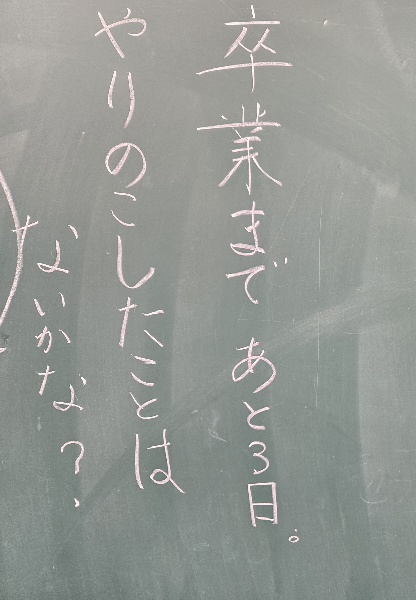 卒業まで あと3日。
やりのこしたことは
ないかな?